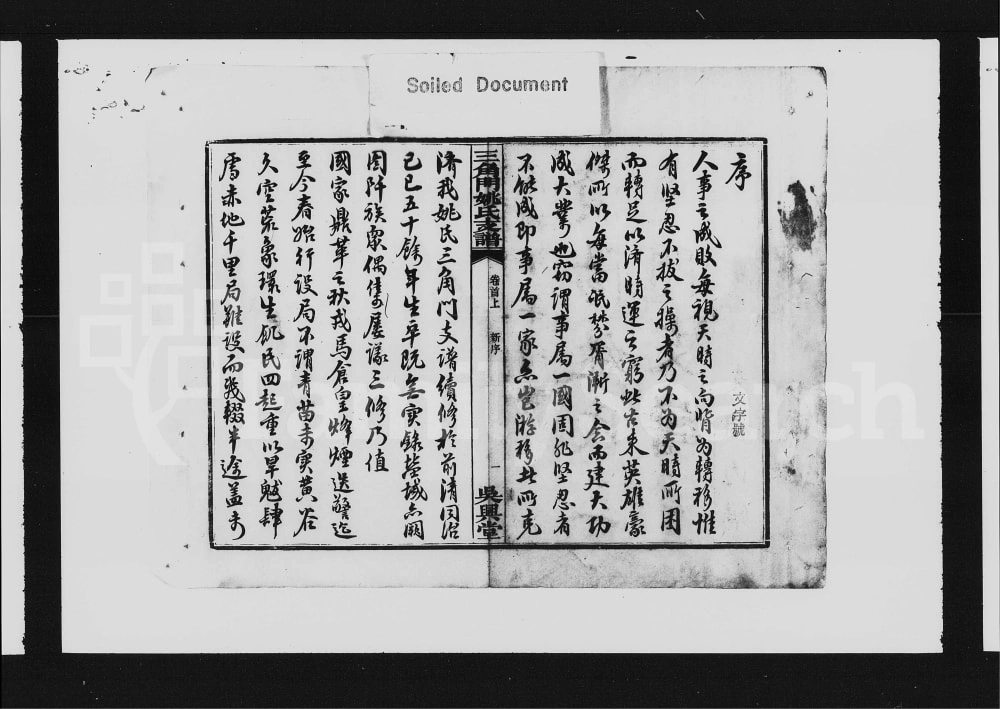 Soiled Document
序
人事之成敗每視天時之向背为轉移惟
有坚忍不拔之操者乃不为天時所困
而轉足以济時運之窮此古来英雄豪
傑所以每當氓棼胥漸之会而建大功
成大業也窃謂事属一國固非坚忍者
不能成即事属一家亦豈游移者所克
文字號
三角門姚氏支譜
卷首上
新序
一
吳興堂
濟我姚氏三角门支譜續修於前清同治
己巳五十餘年生卒既無实錄茔域亦阙
圖阡族众偶集屡議三修乃值
國家鼎革之秋戎馬倉皇烽煙迭警迄
至今春始行设局不谓青苗未实黄谷
久空荒象環生飢民四起重以旱魃肆
虐赤地千里局雖设而幾輟半途盖未